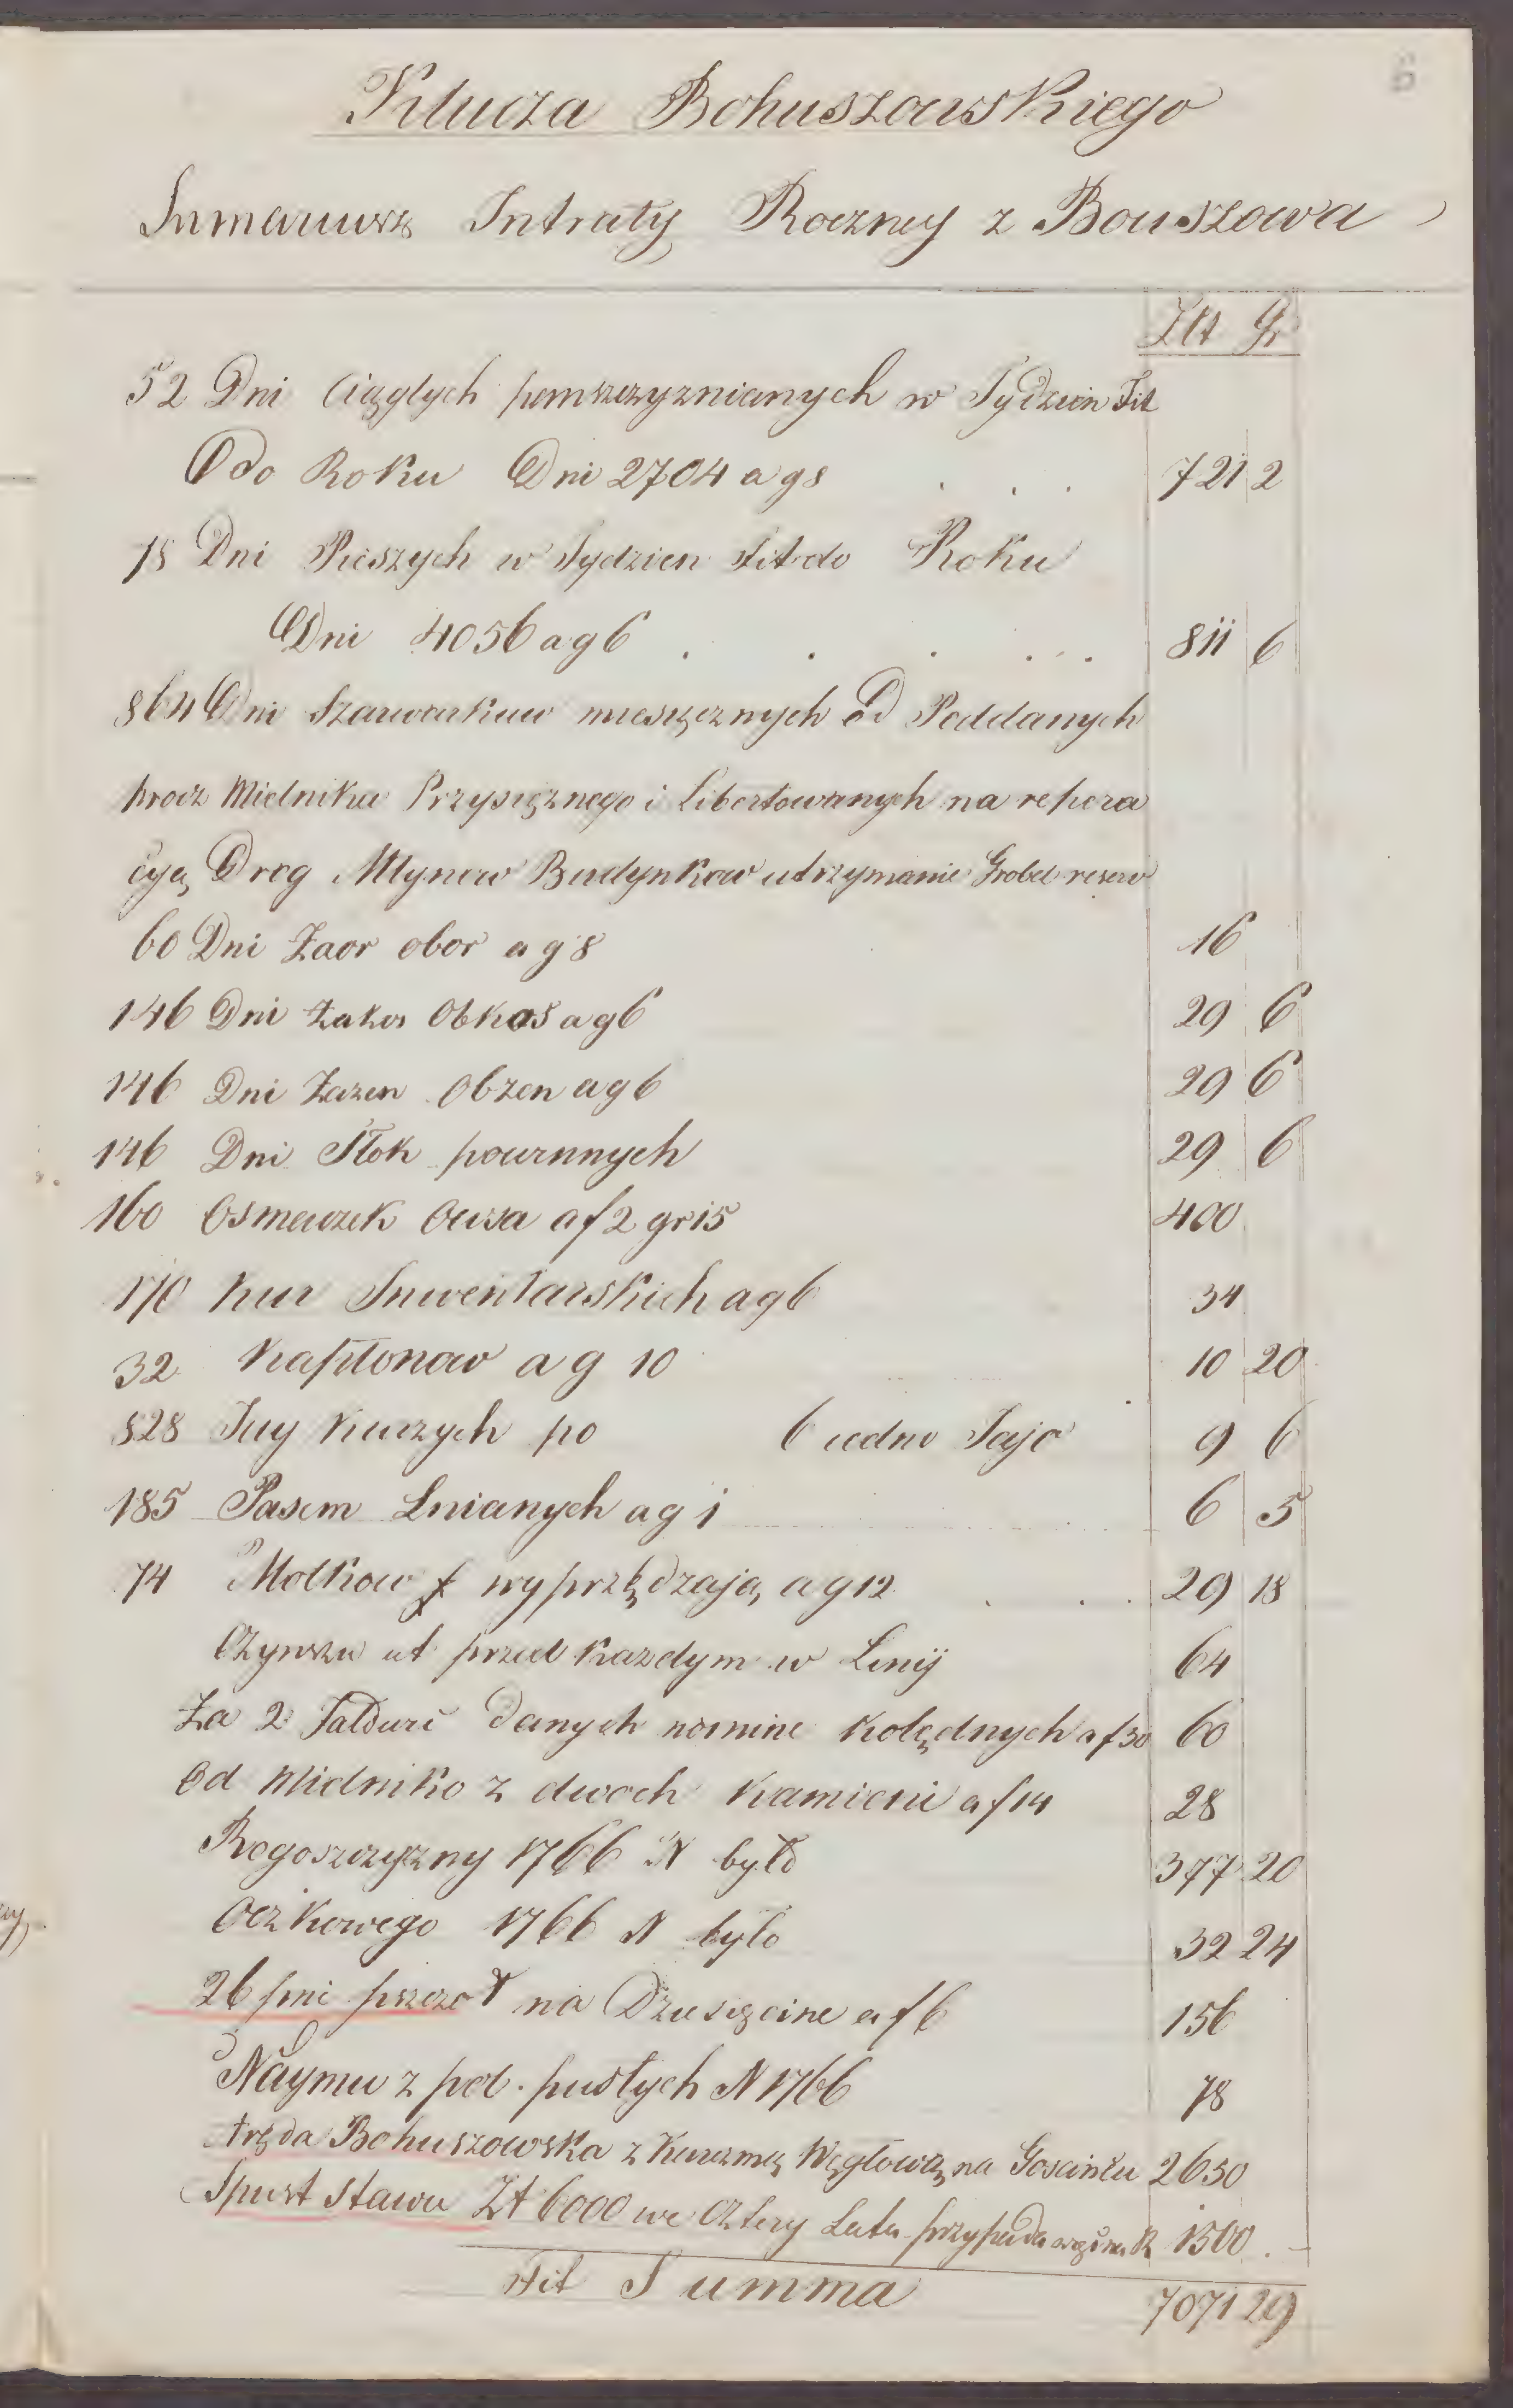 6
Klucza Bohuszowskiego
Sumaruusz Intraty Roczney z Bouszowa
Złt Gr
52 Dni Ciągłych pamszczyznianych w Tydzien Fit
Odo Roku Dni 2704 a g 8 . . . 721 2
78 Dni Pieszych w Tydzien Fit do Roku
Dni 4056 a g 6 . . . . . . 811 6
864 Dni Szarwarkuw miesięcznych Od Poddanych
procz Mielnika Przysięznego i Libertowanych na repera
cyą Drog Młynow Budynkow utrzymanie Grobel reserv
60 Dni Zaor obor a g 8 16
146 Dni Zakos Obkos a g 6 29 6
146 Dni Zazen Obzen a g 6 29 6
146 Dni Tłok powinnych 29 6
160 Osmaczek Owsa a f 2 gr 15 400
170 Kur Inwentarskich a g 6 34
32 Kapłonow a g 10 10 20
828 Jay Kurzych po 6 iedno Jajo 9 6
185 Pasem Lnianych a g 1 6 5
74 Motkow wyprzędzają a g 12 . . . 29 18
Czynszu ut przed Kazdym w Linij 64
Za 2 Jałowic danych nomine Kolędnych a f 30 60
Od Mielnika z dwoch Kamieni a f 14 28
Rogoszczyzny 1766 N było 377 20
Oczkowego 1766 N było 32 24
26 pni pszczoł na Dziesięcine a f 6 156
Naymu z pol pustych N 1766 78
Aręda Bohuszowska z Karczmą Węgłową na Goscincu 2650
Spust Stawu Zł 6000 we Cztery Lata przypada R 1500 . -
Fit Summa 7071 29